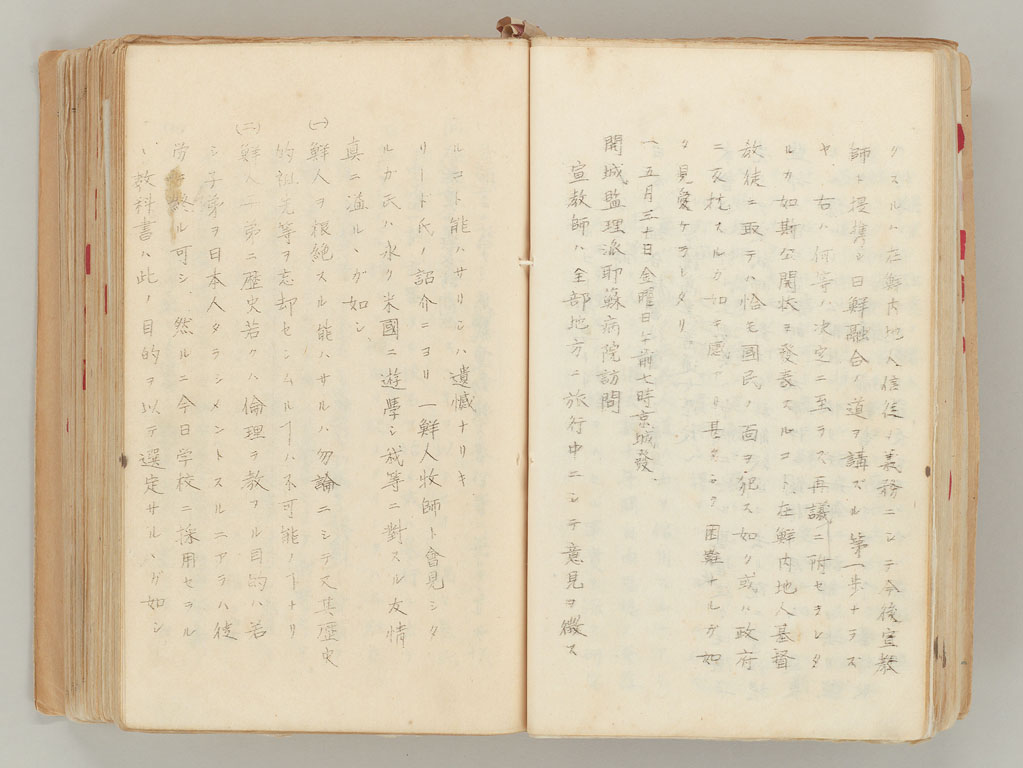 クスルハ在鮮内地人信徒ノ義務ニシテ今後宣教
師ト提携シ日鮮融合ノ道ヲ講ズル第一歩ナラズ
ヤ、右ハ何等ノ決定ニ至ラス再議ニ附セラレタ
ルカ如斯公開状ヲ発表スルコト在鮮内地人基督
教徒ニ取テハ恰モ國民ノ面ヲ犯ス如ク或ハ政府
ニ反抗スルカ如キ感アリ甚タシク困難ナルガ如
ク見受ケラレタリ
一、五月三十日金曜日午前七時京城發、
開城監理派耶蘇病院訪問
宣教師ハ全部地方ニ旅行中ニシテ意見ヲ徴ス
ルコト能ハサリシハ遺憾ナリキ
リート氏ノ詔介ニヨリ一鮮人牧師ト會見シタ
ルガ氏ハ永ク米國ニ遊學シ我等ニ對スル友情
真ニ溢ルヽガ如シ、
(一)鮮人ヲ根絶スル能ハサルハ勿論ニシテ又其歴史
的祖先等ヲ忘却セシムルヿハ不可能ノヿナリ
(二)鮮人子弟ニ歴史若クハ倫理ヲ教フル目的ハ若
シ子弟ヲ日本人タラシメントスルニアラハ徒
労ニ終ル可シ、然ルニ今日学校ニ採用セラル
ヽ教科書ハ此ノ目的ヲ以テ選定サルヽガ如シ